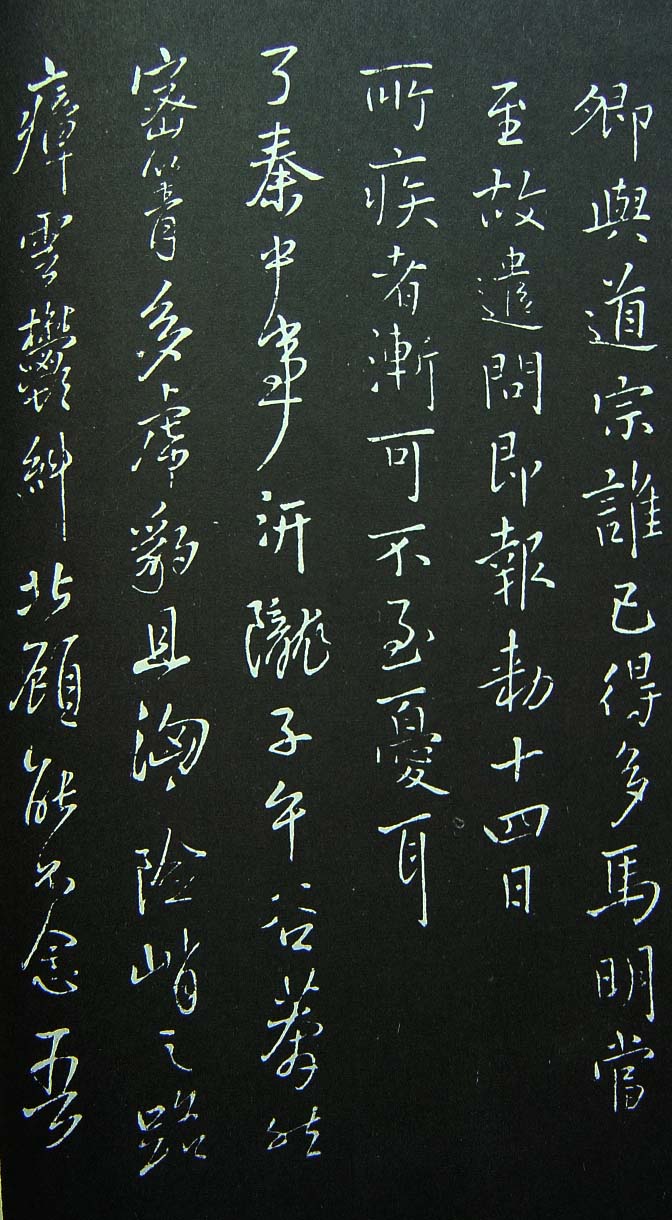 卿與道宗誰已得多馬明當
至故遣問即報勅十四日
所疾者漸可不至憂耳
了秦中事汧隴子午谷
密箐多虎豹且洶〻險峭之路
瘴雲鬱糾北顧能不念吾